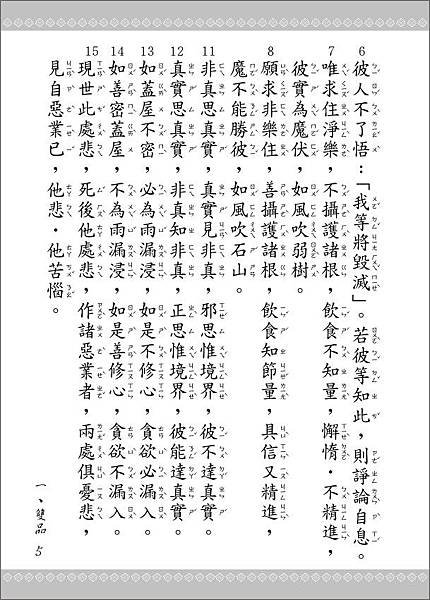 6 彼人不了悟：「我等將毀滅」。若彼等知此，則諍論自息。
7 唯求住淨樂，不攝護諸根，飲食不知量，懈惰．不精進，
彼實為魔伏，如風吹弱樹。
8 願求非樂住，善攝護諸根，飲食知節量，具信又精進，
魔不能勝彼，如風吹石山。
11 非真思真實，真實見非真，邪思惟境界，彼不達真實。
12 真實思真實，非真知非真，正思惟境界，彼能達真實。
13 如蓋屋不密，必為雨漏浸，如是不修心，貪欲必漏入。
14 如善密蓋屋，不為雨漏浸，如是善修心，貪欲不漏入。
15 現世此處悲，死後他處悲，作諸惡業者，兩處俱憂悲，
見自惡業已，他悲．他苦惱。
一、雙品 5